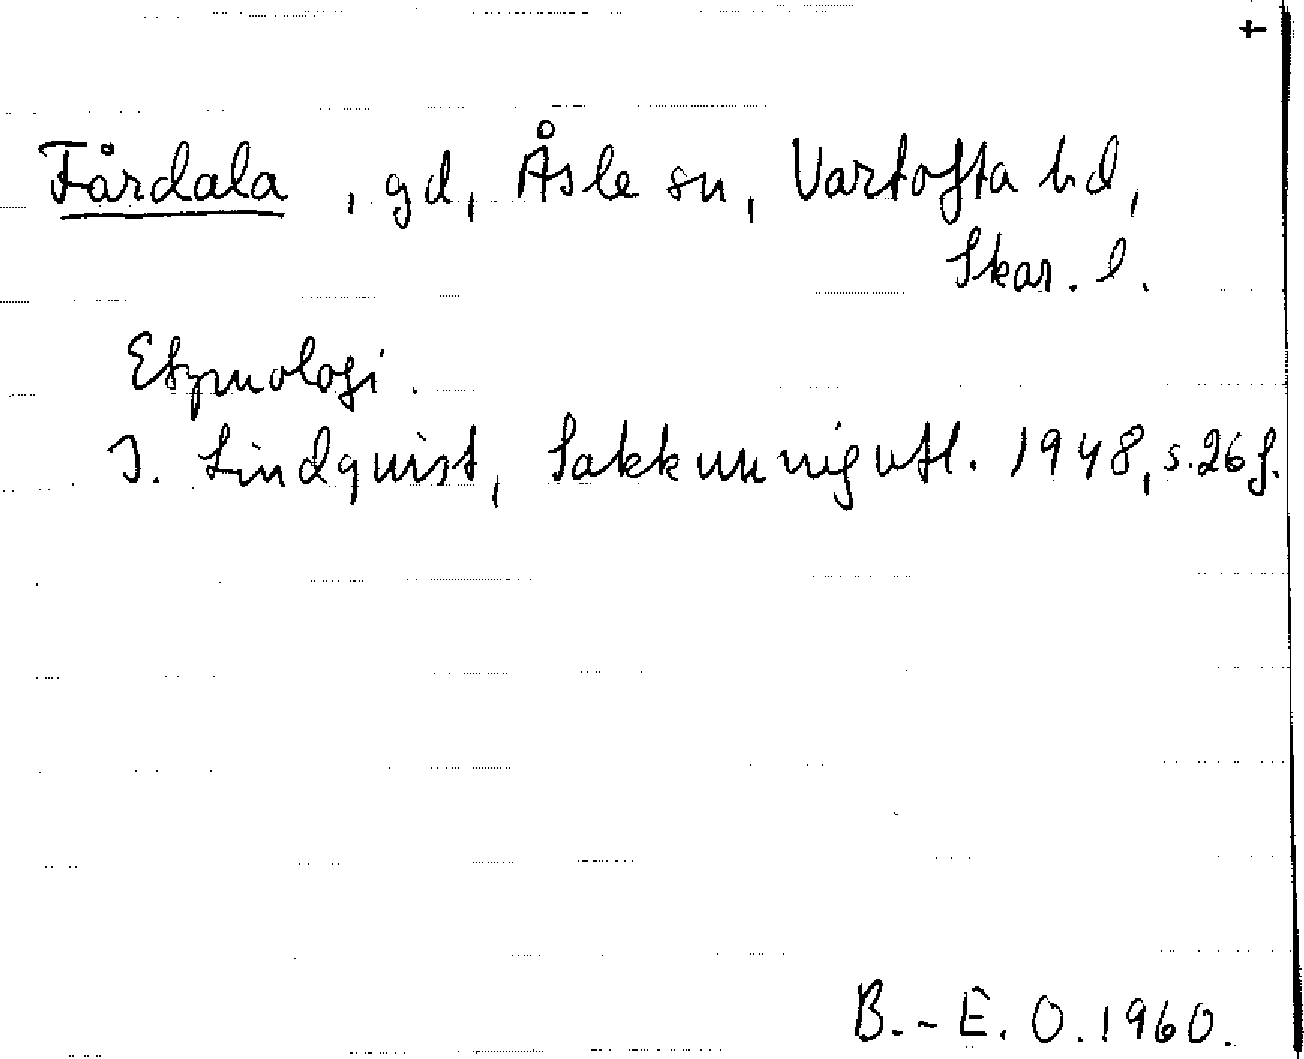 +
Fårdala, gd, Åsle sn, Vartofta hd,
Skar. l.
Etymologi.
I. Lindquist, Sakkunnigutl. 1948, s. 26 f.
B.-E. O. 1960.